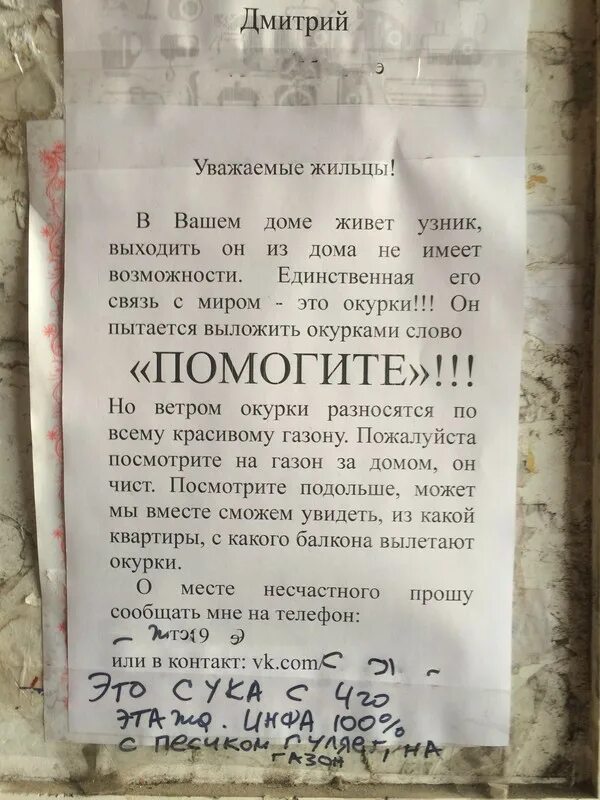 Дмитрий
Уважаемые жильцы!
В Вашем доме живет узник,
выходить он из дома не имеет
возможности. Единственная его
связь с миром - это окурки!!! Он
пытается выложить окурками слово
«ПОМОГИТЕ»!!!
Но ветром окурки разносятся по
всему красивому газону. Пожалуйста
посмотрите на газон за домом, он
чист. Посмотрите подольше, может
мы вместе сможем увидеть, из какой
квартиры, с какого балкона вылетают
окурки.
О месте несчастного прошу
сообщать мне на телефон:
или в контакт: vk.com/
ЭТО СУКА С 4ГО
ЭТАЖА. ИНФА 100%
С ПЕСИКОМ ГУЛЯЕТ, НА
ГАЗОН